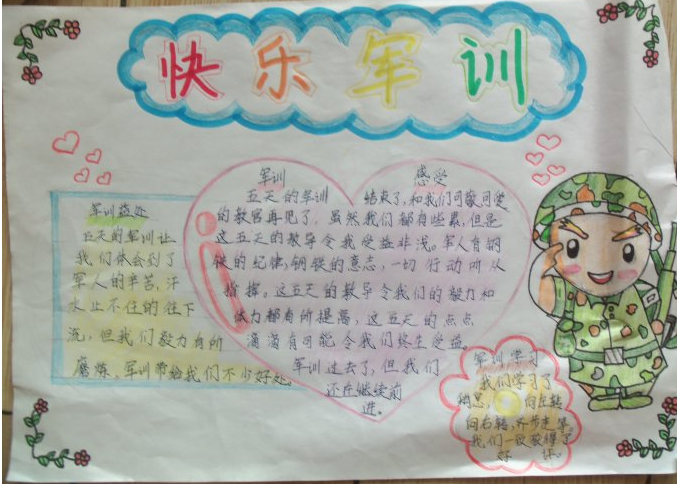 快乐军训
军训益处
五天的军训让
我们体会到了
军人的辛苦,汗
水止不住的往下
流,但我们毅力有所
磨炼、军训带给我们不少好处。
军训 感受
五天的军训 结束了,和我们可敬可爱
的教官再见了,虽然我们都有些累,但是
这五天的教导令我受益非浅。军人有钢
铁的纪律,钢铁的意志,一切行动听从
指挥。这五天的教导令我们的毅力和
体力都有所提高,这五天的点点
滴滴有可能令我们终生受益。
军训过去了,但我们
还在继续前
进。
军训学习
我们学习了
稍息, 向左转
向右转,齐步走等。
我们一致觉得了
好